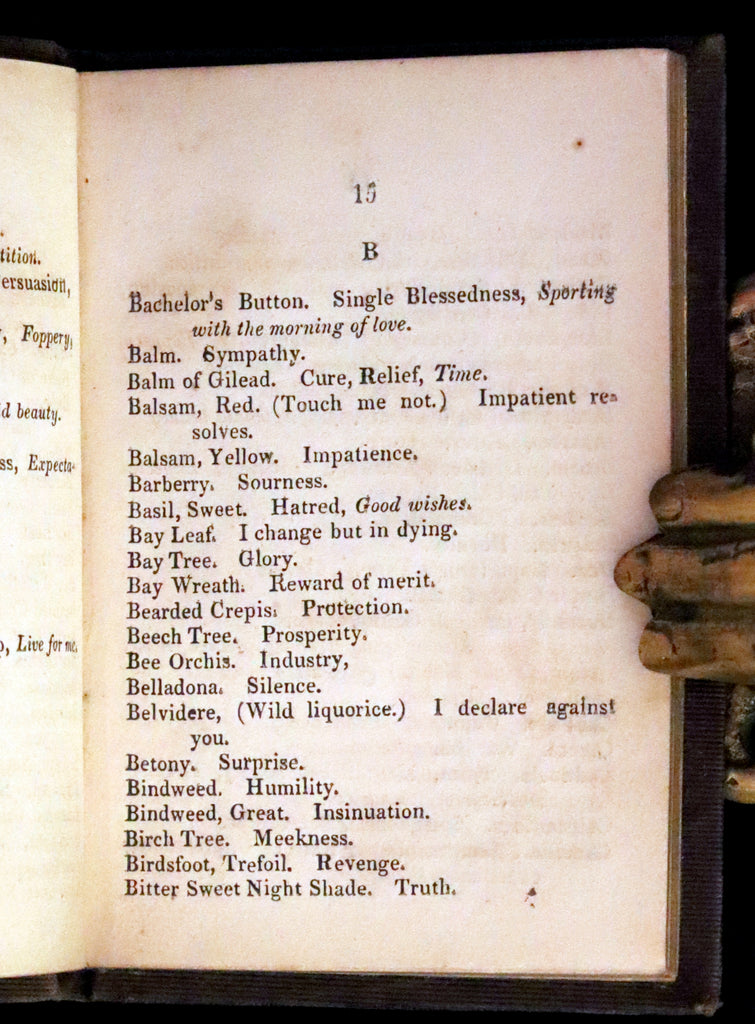 tition.
ersuasion,
Foppery,
d beauty.
ss, Expecta-
Live for me.
15
B
Bachelor's Button. Single Blessedness, Sporting
with the morning of love.
Balm. Sympathy.
Balm of Gilead. Cure, Relief, Time.
Balsam, Red. (Touch me not.) Impatient re-
solves.
Balsam, Yellow. Impatience.
Barberry. Sourness.
Basil, Sweet. Hatred, Good wishes.
Bay Leaf. I change but in dying.
Bay Tree. Glory.
Bay Wreath. Reward of merit.
Bearded Crepis. Protection.
Beech Tree. Prosperity.
Bee Orchis. Industry,
Belladona. Silence.
Belvidere, (Wild liquorice.) I declare against
you.
Betony. Surprise.
Bindweed. Humility.
Bindweed, Great. Insinuation.
Birch Tree. Meekness.
Birdsfoot, Trefoil. Revenge.
Bitter Sweet Night Shade. Truth.